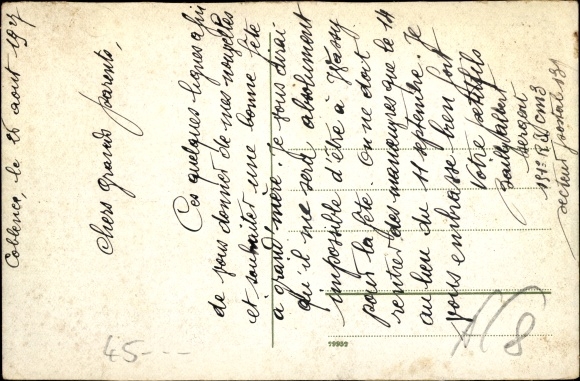 Coblence le 25 aout 1927
Chers grands parents,
Ces quelques lignes afin
de vous donner de mes nouvelles
et souhaiter une bonne fête
à grand'mère. Je vous dirai
qu'il me sera absolument
impossible d'être à Wassy
pour la fête. On ne doit
rentrer des manœuvres que le 14
au lieu du 11 septembre. Je
vous embrasse bien fort
Votre petit fils
Bailly Albert
sergent
151e R.I. CM3
secteur postal 131
45---
19907